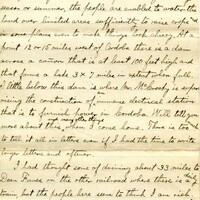 season or summer, the people are enabled to water the
land over limited areas sufficiently to raise crops
in some places even to make things look cheery. At a
point 12 or 15 miles west of Cordoba there is a dam
across a cañon that is at least 100 feet high and
that forms a lake 3 x 7 miles in extent when full.
A little below this dam is where Mr. McCrosky is super-
vising the construction of immense electrical station
that is to furnish power in Cordoba. Will tell you
and everything
more about this when I come home. There is too
to tell it all in letters even if I had the time to write
longer letters and oftener.
I had thought some of driving about 33 miles to
Dean Funes on the other railroad where there is a
town, but the people here seem to think I am rich,